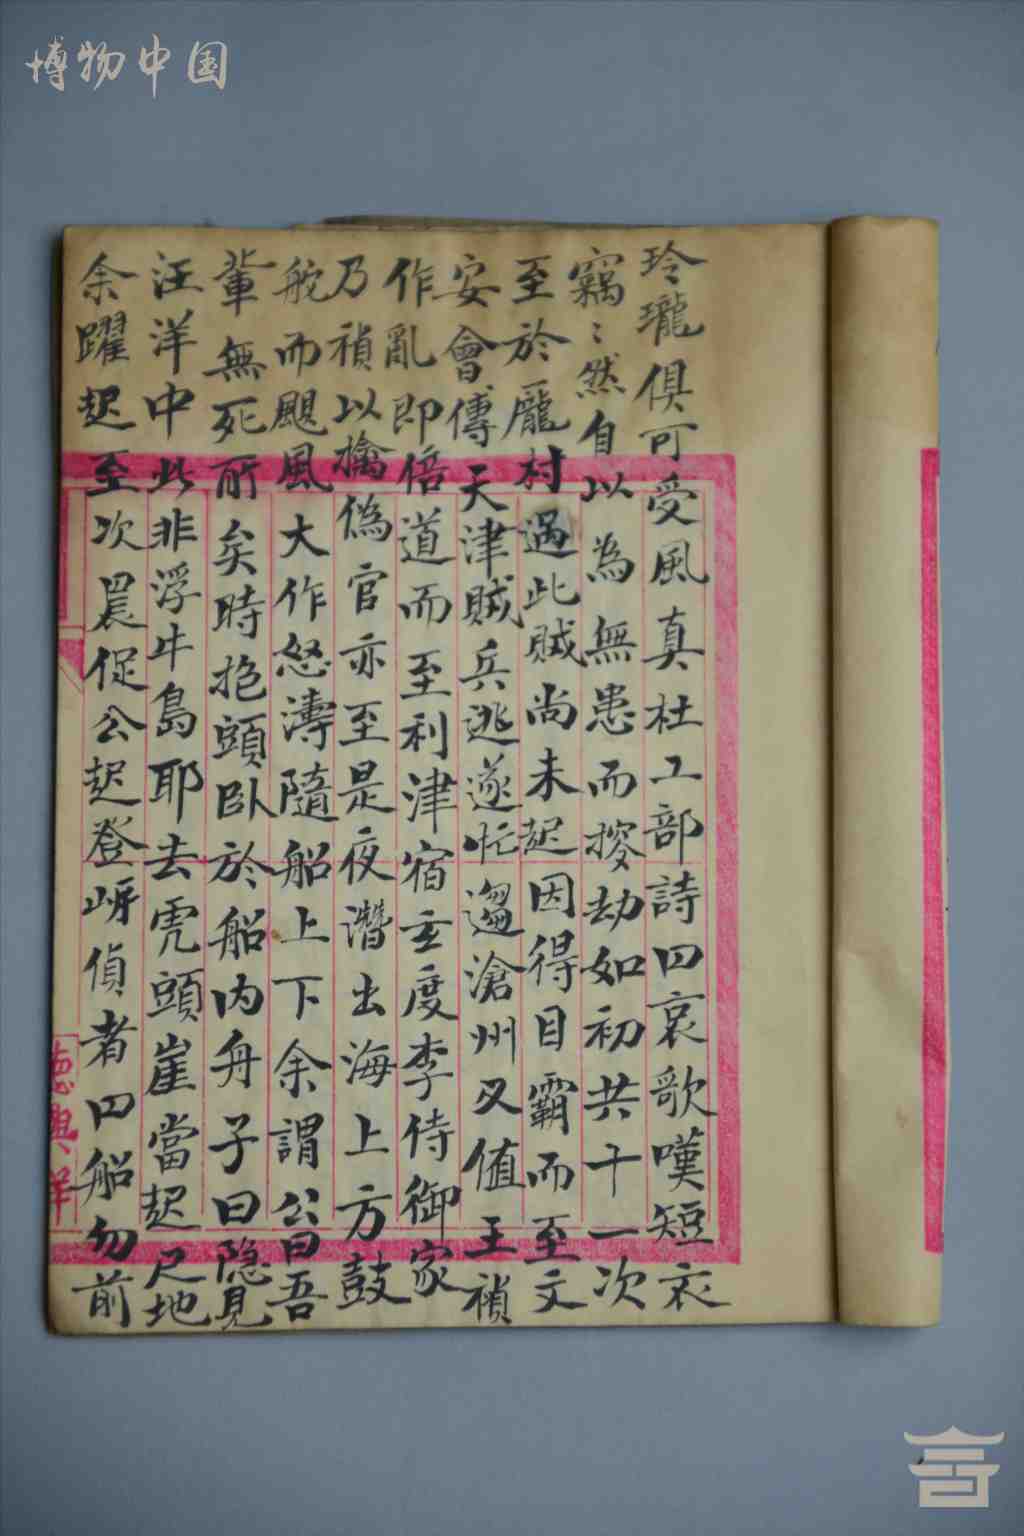 博物中国
玲瓏俱可受風真杜工部詩四哀歌嘆短衣
竊〻然自以為無患而搜劫如初共十一次
至於龐村遇此賊尚未起因得目霸而至文
安會傳天津賊兵逃遂忙過滄州又值王禎
作亂即倍道而至利津宿玄度李侍御家
乃禎以擒偽官亦至是夜潛出海上方鼓
舵而颶風大作怒濤隨船上下余謂公曰吾
輩無死所矣時抱頭臥於船内舟子曰隐見
汪洋中此非浮牛島耶去虎頭崖當起尺地
余躍起至次晨促公起登岈偵者曰船勿前
德興祥